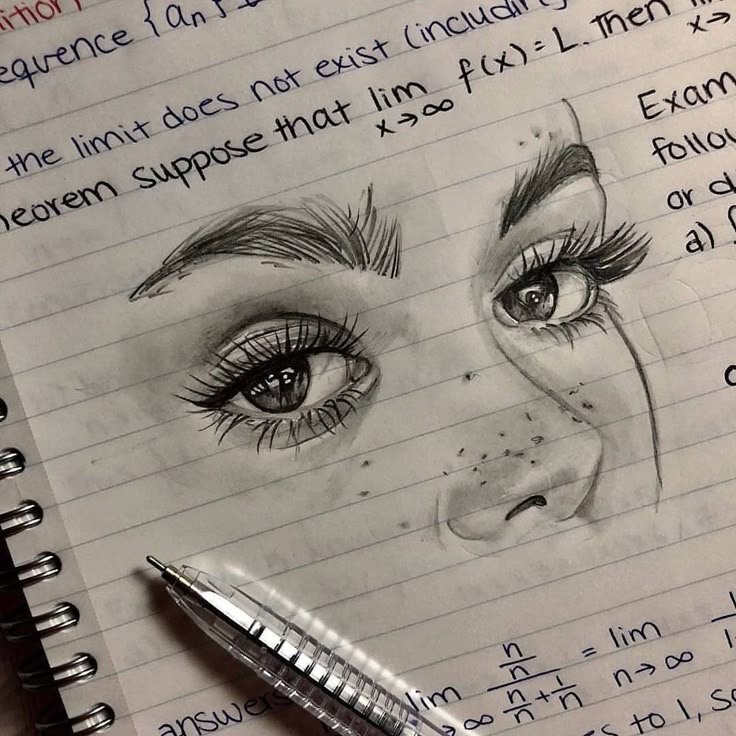 sequence {aₙ}
the limit does not exist (including
heorem suppose that lim f(x) = L. Then
x→∞
x→
Exam
follow
or d
a)
answers
lim (n/n)/(n/n + 1/n) = lim 1
→∞ n→∞
to 1, so